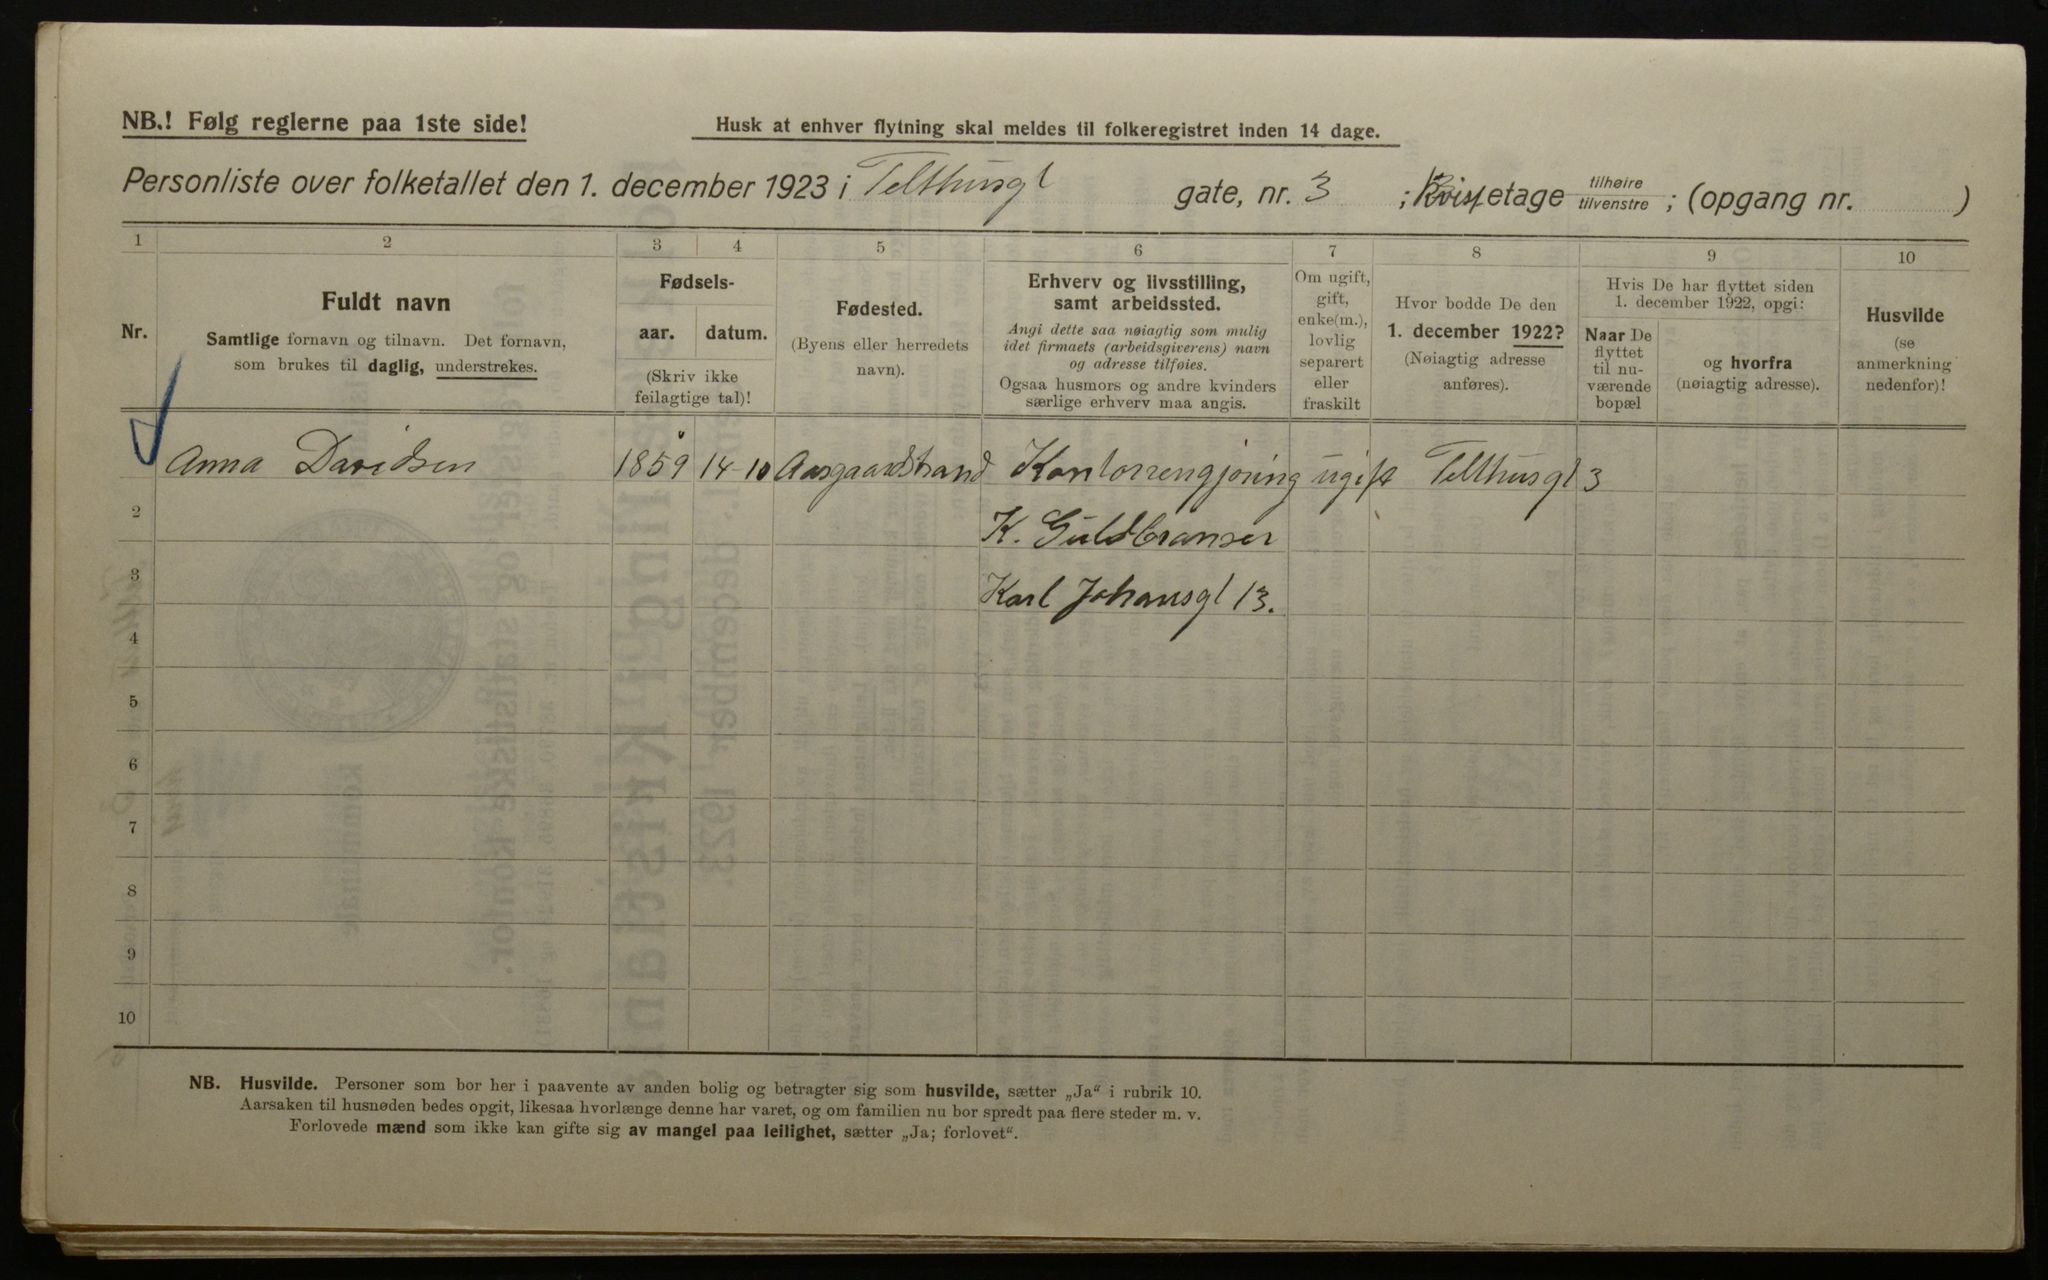 NB.! Følg reglerne paa 1ste side!
Husk at enhver flytning skal meldes til folkeregistret inden 14 dage.
Personliste over folketallet den 1. december 1923 i Telthusgt gate, nr. 3 ; Kvist etage tilhøire tilvenstre ; (opgang nr. )
1 2 3 4 5 6 7 8 9 10
Nr.
Fuldt navn
Samtlige fornavn og tilnavn. Det fornavn,
som brukes til daglig, understrekes.
Fødsels-
aar. datum.
(Skriv ikke
feilagtige tal)!
Fødested.
(Byens eller herredets
navn).
Erhverv og livsstilling,
samt arbeidssted.
Angi dette saa nøiagtig som mulig
idet firmaets (arbeidsgiverens) navn
og adresse tilføies.
Ogsaa husmors og andre kvinders
særlige erhverv maa angis.
Om ugift,
gift,
enke(m.),
lovlig
separert
eller
fraskilt
Hvor bodde De den
1. december 1922?
(Nøiagtig adresse
anføres).
Hvis De har flyttet siden
1. december 1922, opgi:
Naar De
flyttet
til nu-
værende
bopæl
og hvorfra
(nøiagtig adresse).
Husvilde
(se
anmerkning
nedenfor)!
Anna Davidsen 1859 14-10 Aasgaardstrand Kontorrengjøring ugift Telthusgt 3
2 K. Guldbransen
3 Karl Johansgt 13.
4
5
6
7
8
9
10
NB. Husvilde. Personer som bor her i paavente av anden bolig og betragter sig som husvilde, sætter „Ja“ i rubrik 10.
Aarsaken til husnøden bedes opgit, likesaa hvorlænge denne har varet, og om familien nu bor spredt paa flere steder m. v.
Forlovede mænd som ikke kan gifte sig av mangel paa leilighet, sætter „Ja; forlovet“.